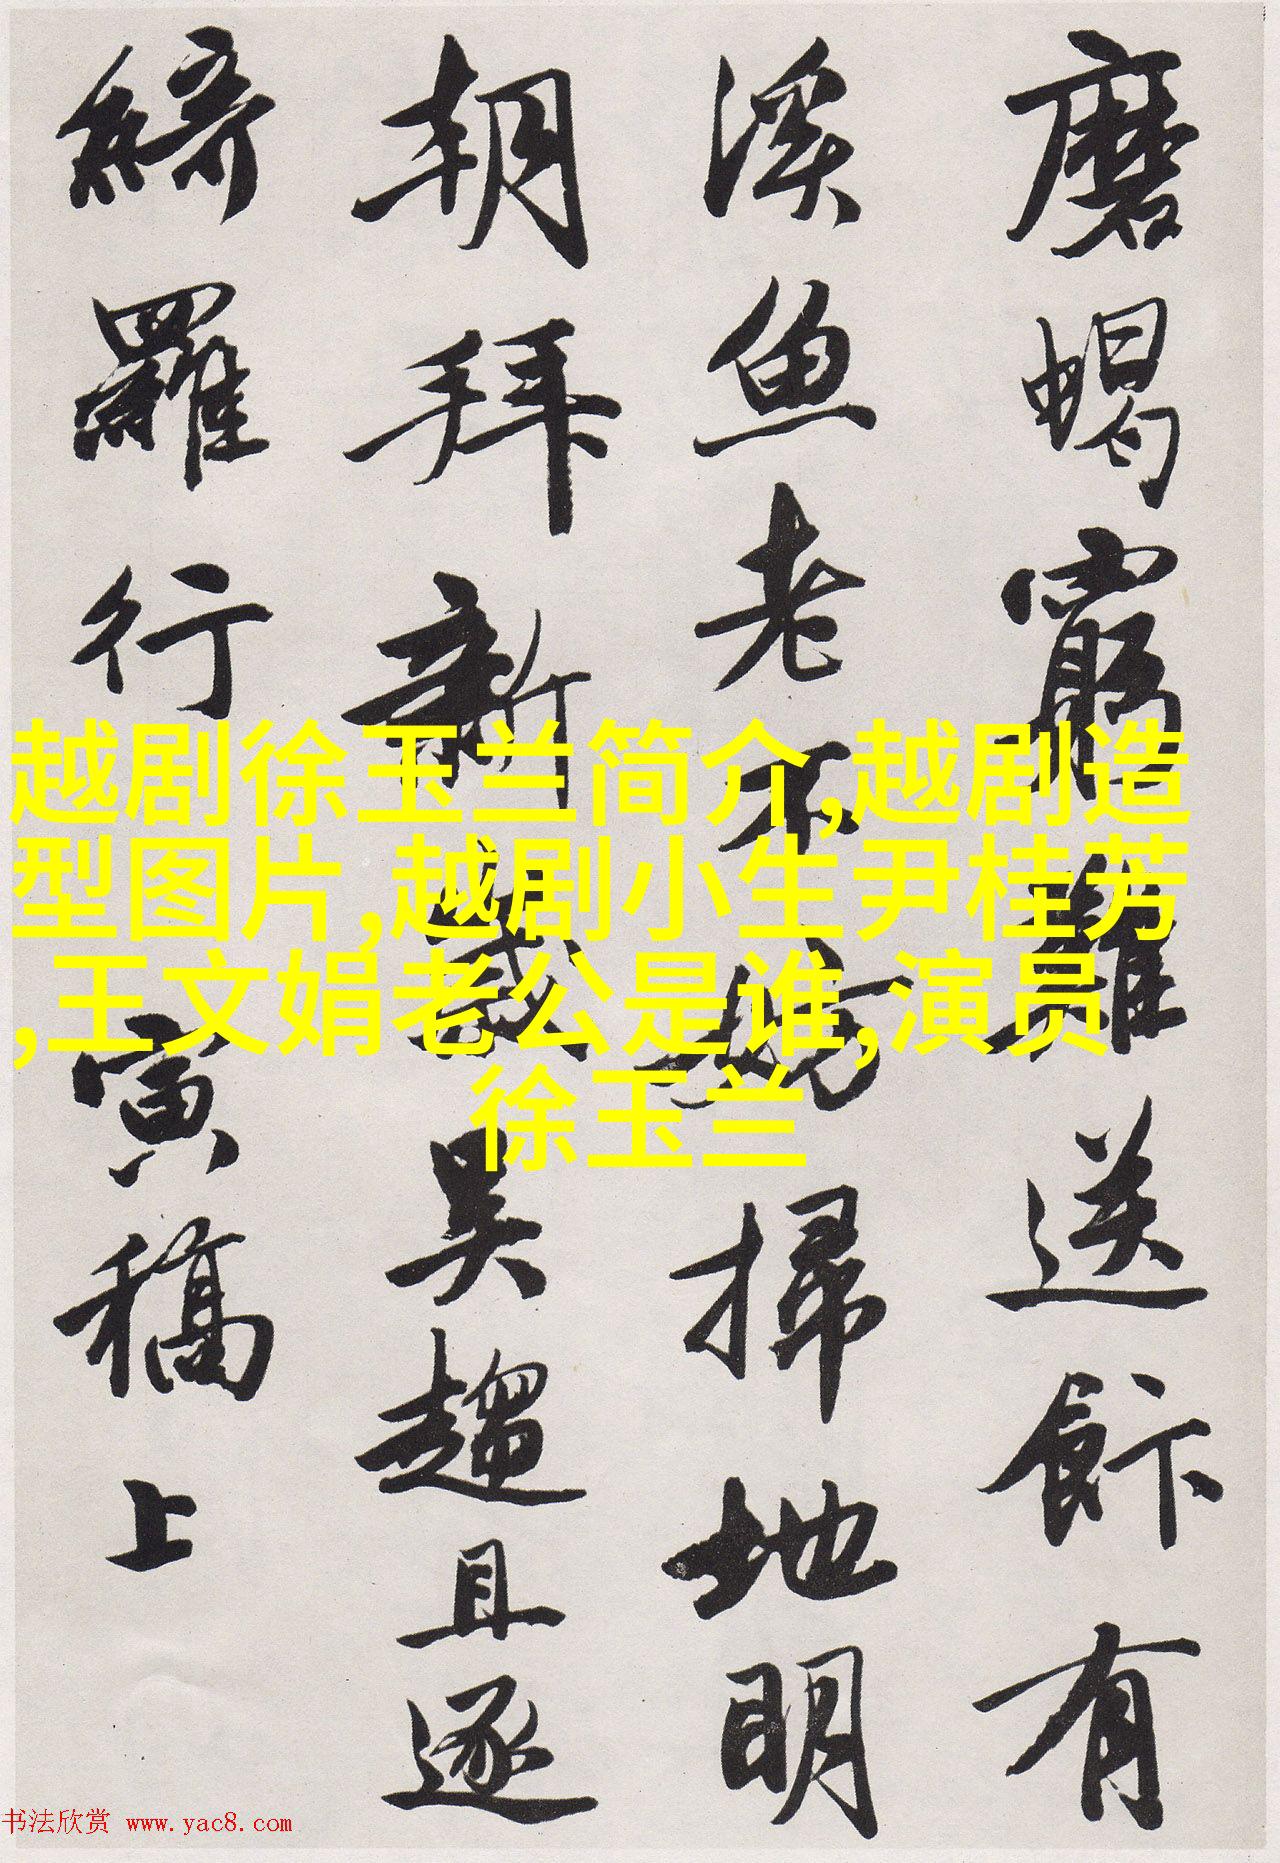 磨蝎窮難送飰有
溪魚老不妨掃地明
朝拜新歲吴趨且逐
綺羅行
寅稿上
越剧徐玉兰简介,越剧造
型图片,越剧小生尹桂芳
,王文娟老公是谁,演员
徐玉兰
书法欣赏 www.yac8.com